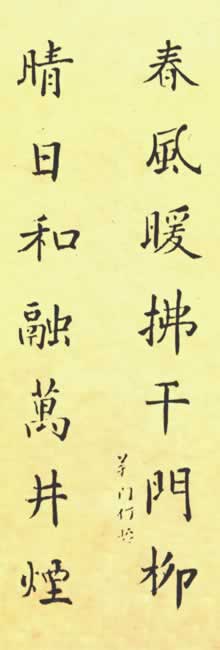 春風暖拂千門柳
晴日和融萬井煙